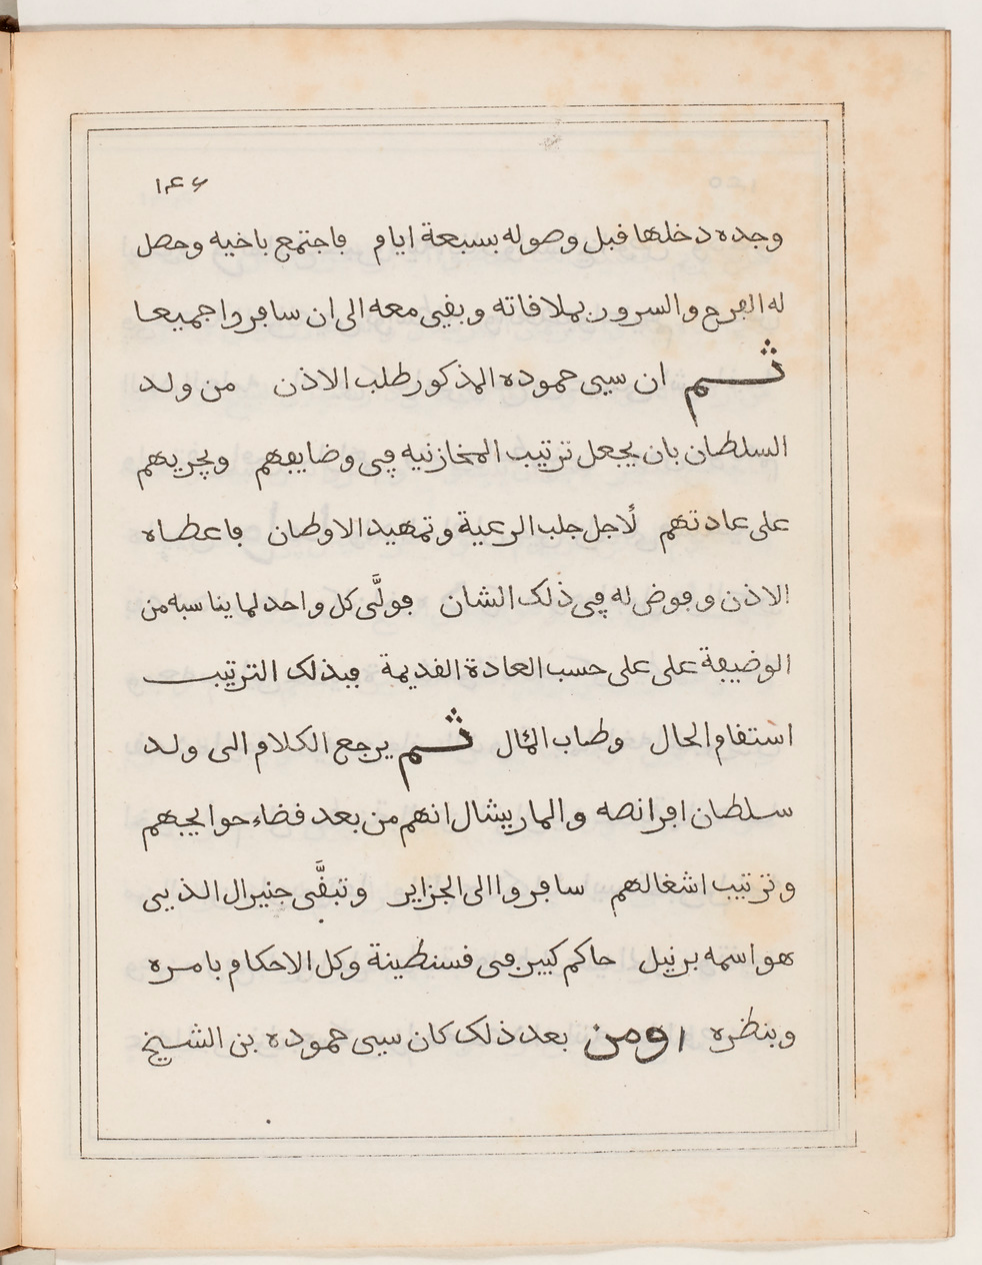 ١٤٦
وجده دخلها قبل وصوله بسبعة ايام فاجتمع باخيه وحصل
له الفرح والسرور بملاقاته وبقى معه الى ان سافروا جميعا
ثم ان سيى حموده المذكور طلب الاذن من ولد
السلطان بان يجعل ترتيب المخازنيه في وضايفهم ويجريهم
على عادتهم لاجل جلب الرعية وتمهيد الاوطان فاعطاه
الاذن وفوض له في ذلك الشان فولَّى كل واحد لما يناسبه من
الوضيفة على على حسب العادة القديمة فبذلك الترتيب
استقام الحال وطاب المئال ثم يرجع الكلام الى ولد
سلطان افرانصه والماريشال انهم من بعد قضاء حوايجهم
وترتيب اشغالهم سافروا الى الجزاير وتبقَّى جنيرال الذيى
هو اسمه برنيل حاكم كبير فى قسنطينة وكل الاحكام بامره
وبنظره ومن بعد ذلك كان سيى حموده بن الشيخ